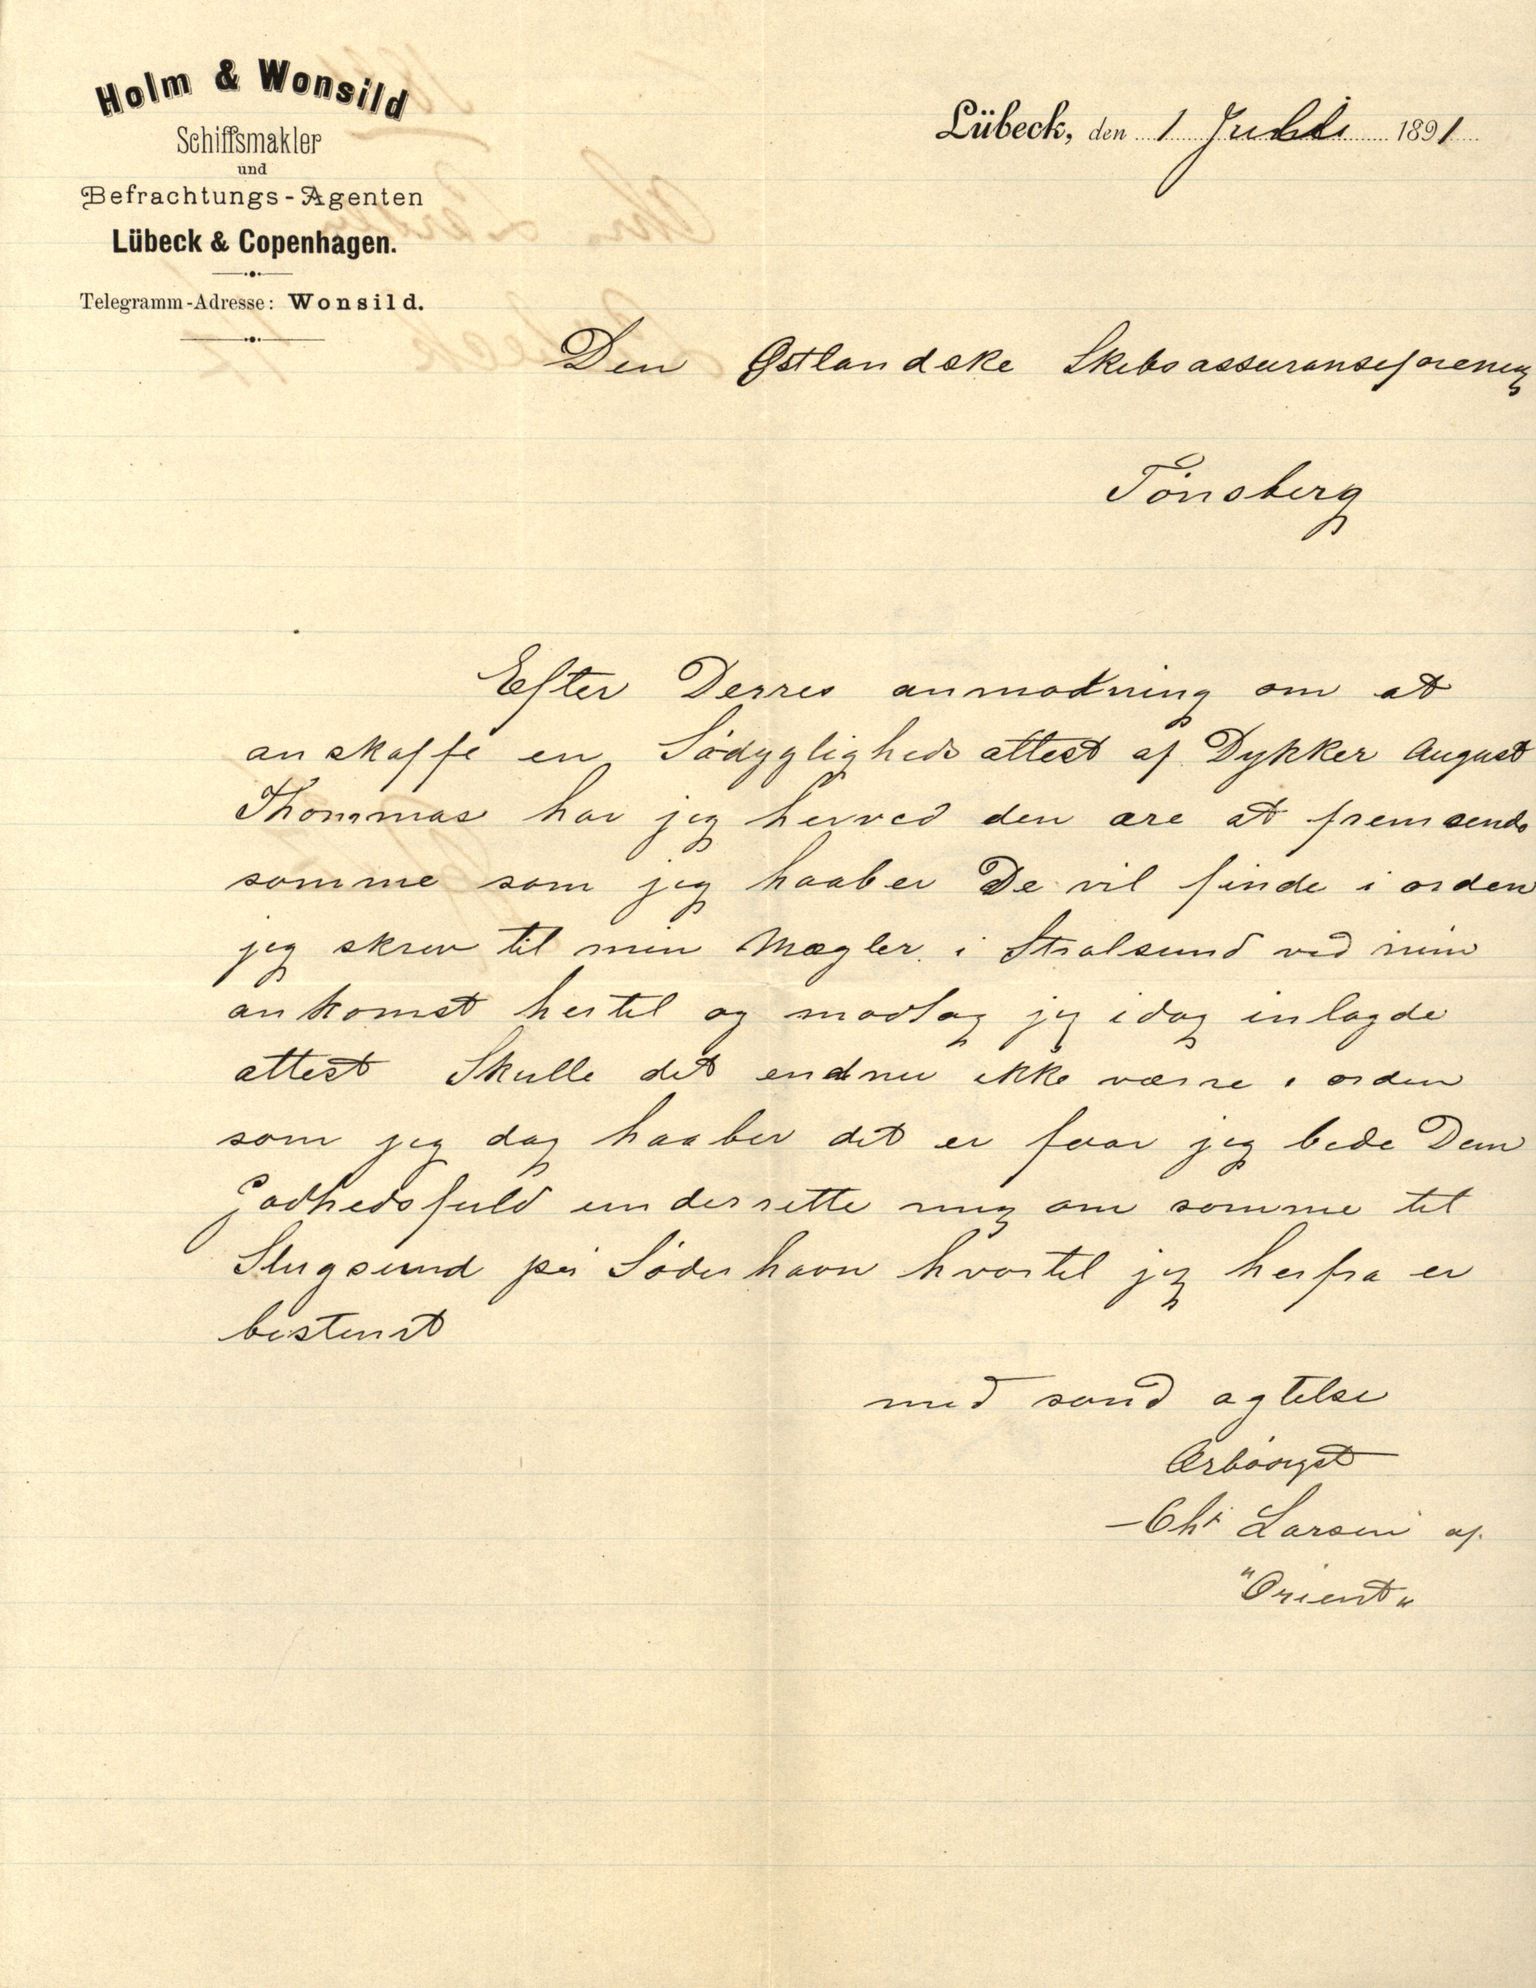 Holm & Wonsild
Schiffsmakler
und
Befrachtungs-Agenten
Lübeck & Copenhagen.
Telegramm-Adresse: Wonsild.
Lübeck, den 1 Julli 1891
Den Østlandske Skibsassuranseforening
Tönsberg
Efter Derres anmodning om at
anskaffe en Södygligheds attest af Dykker August
Thommas har jeg herved den ære at fremsende
somme som jeg haaber De vil finde i orden
jeg skrev til min Mægler i Stralsund ved min
ankomst hertil og modtog jeg idag inlagde
attest Skulle det endnu ikke værre i orden
som jeg dog haaber det er faar jeg bede Dem
Godhedsfuld underrette mig om somme til
Slugsund på Söderhavn hvortil jeg herfra er
bestemt
med sand agtelse
Ærbödigst
Chr Larsen af
"Orient"